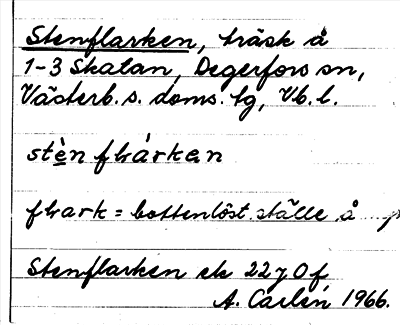 Stenflarken, träsk å
1-3 Skatan, Degerfors sn,
Västerb. s. doms. tg, Vb. l.
stèn flárkan
flark = bottenlöst ställe å
Stenflarken ek 22 7 0 f
A. Carlén 1966.